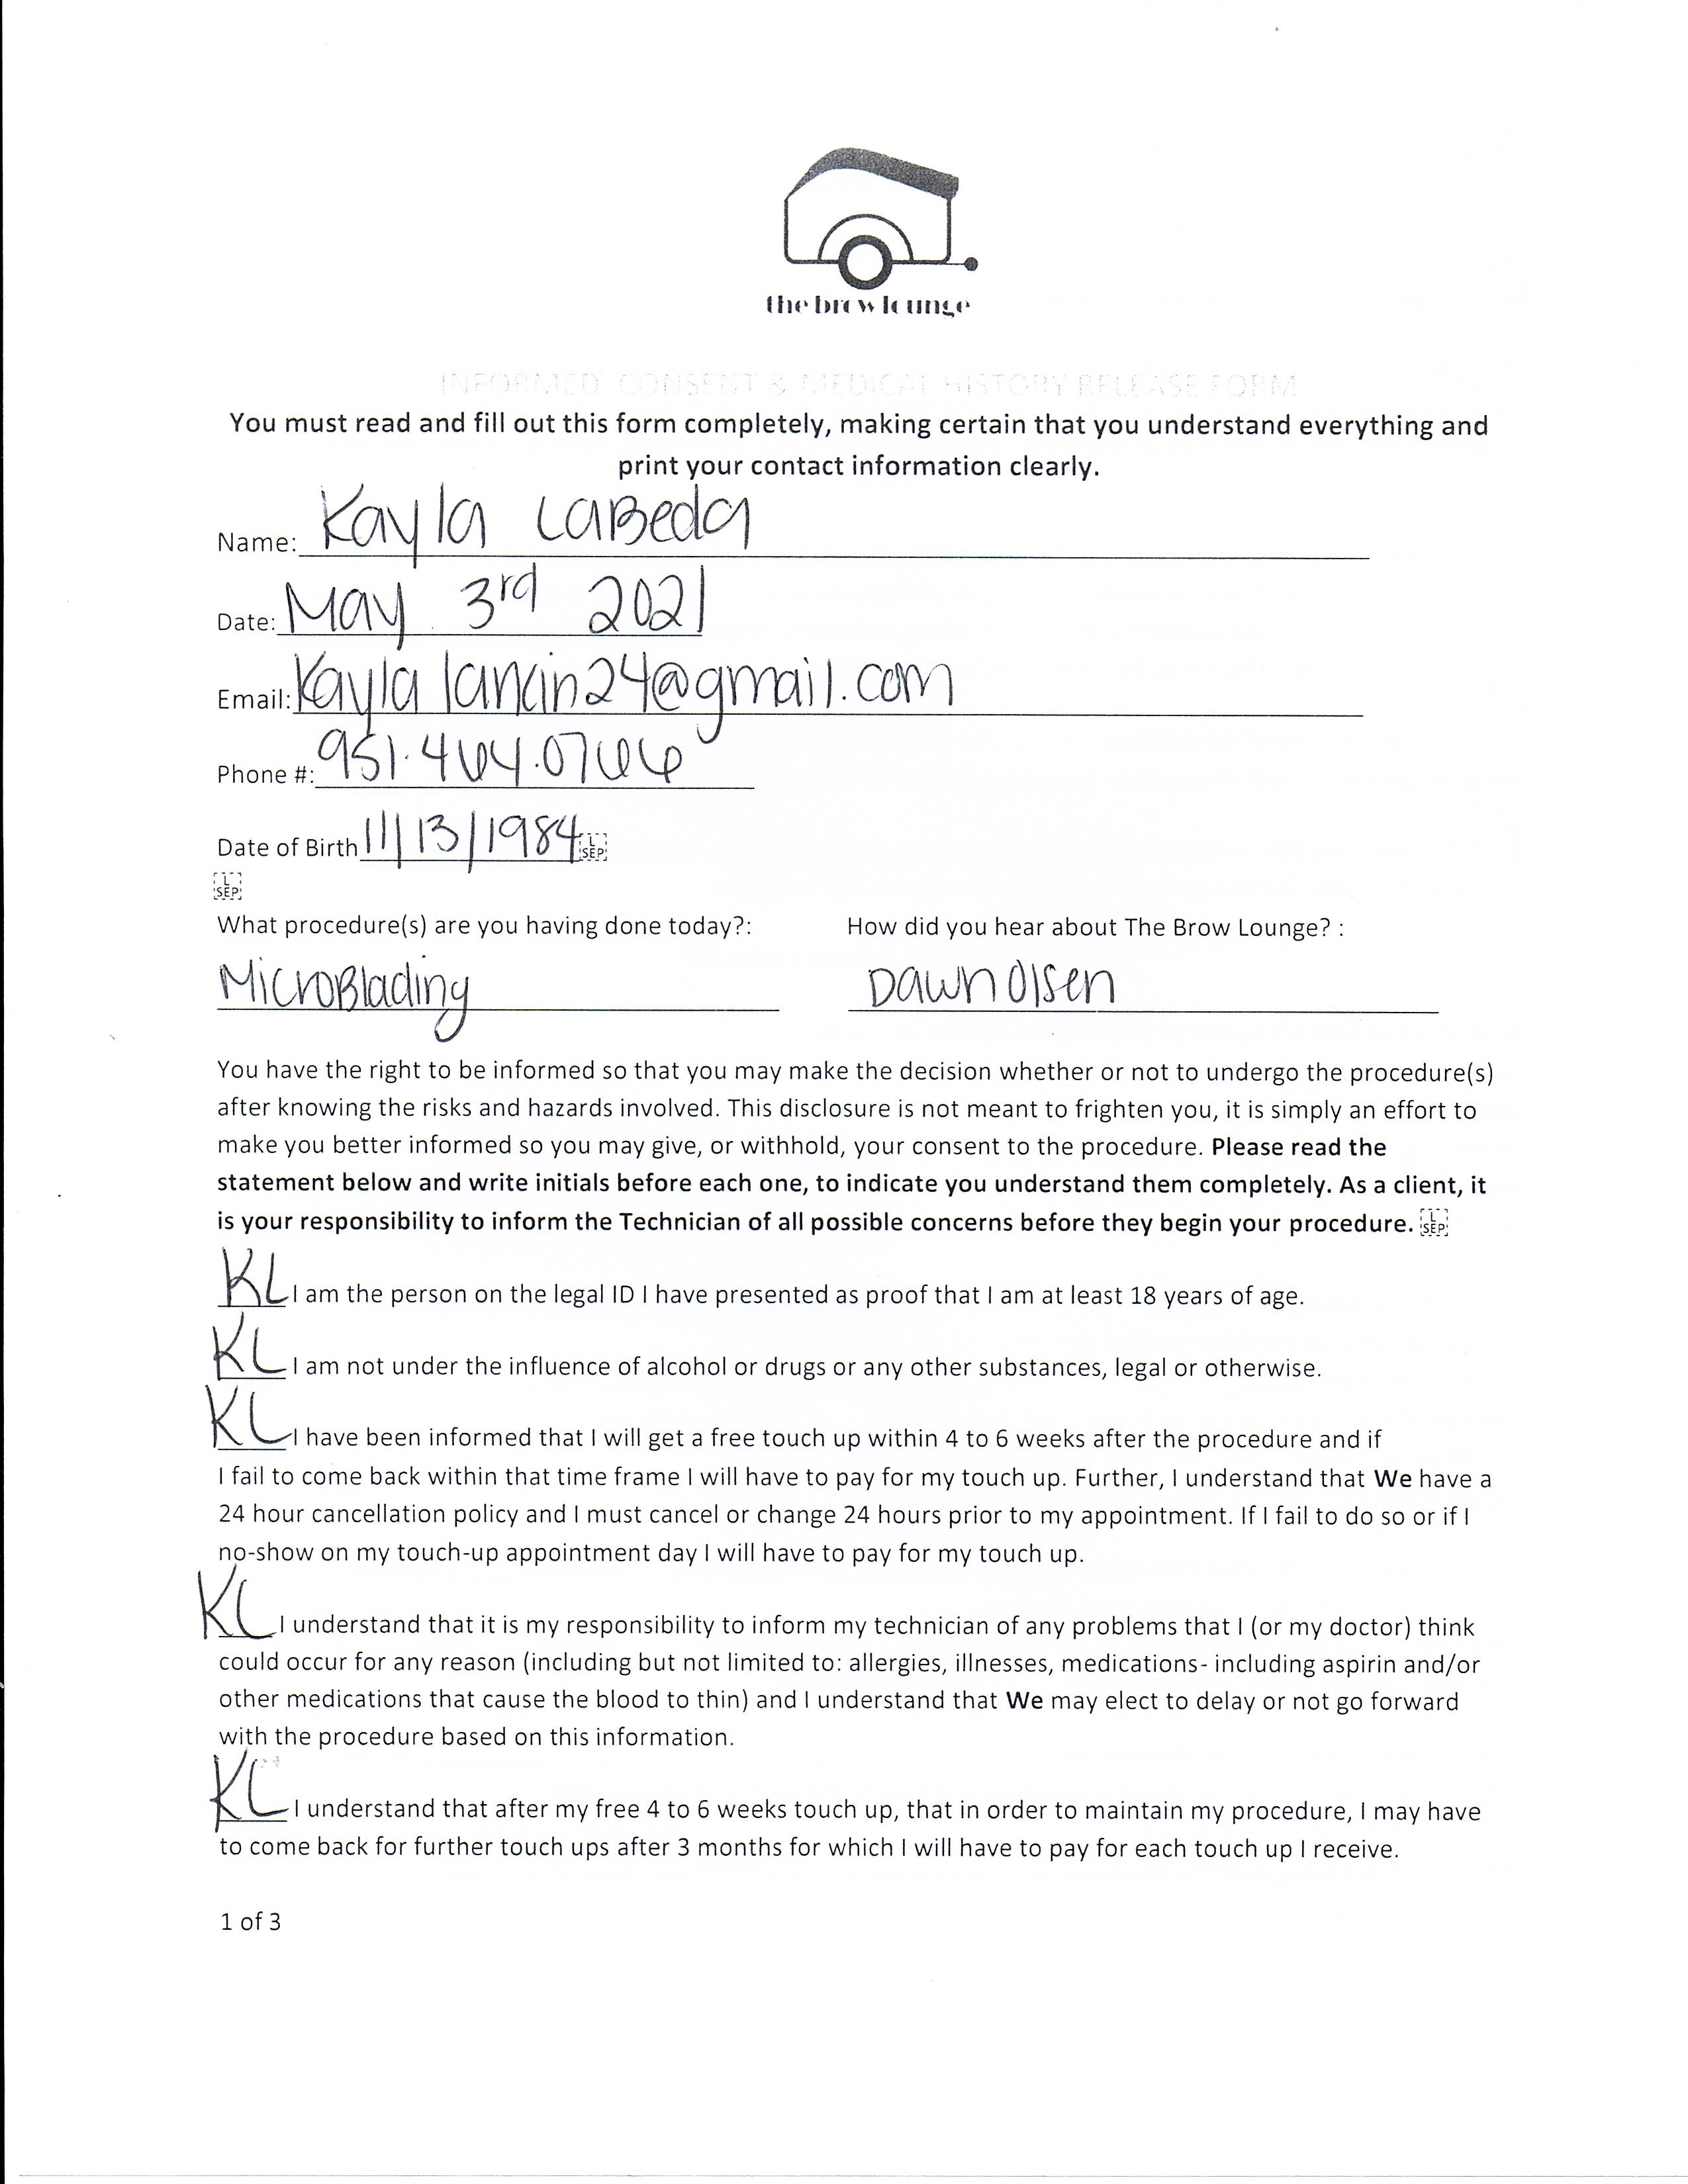 the brow lounge
INFORMED CONSENT & MEDICAL HISTORY RELEASE FORM
You must read and fill out this form completely, making certain that you understand everything and
print your contact information clearly.
Name: Kayla LaBeda
Date: May 3rd 2021
Email: Kayla
Phone #: 951.464.0766
Date of Birth 11/13/1984 L SEP
L SEP
What procedure(s) are you having done today?: How did you hear about The Brow Lounge? :
MicroBlading Dawn Olsen
You have the right to be informed so that you may make the decision whether or not to undergo the procedure(s)
after knowing the risks and hazards involved. This disclosure is not meant to frighten you, it is simply an effort to
make you better informed so you may give, or withhold, your consent to the procedure. Please read the
statement below and write initials before each one, to indicate you understand them completely. As a client, it
is your responsibility to inform the Technician of all possible concerns before they begin your procedure. L SEP
KL I am the person on the legal ID I have presented as proof that I am at least 18 years of age.
KL I am not under the influence of alcohol or drugs or any other substances, legal or otherwise.
KL I have been informed that I will get a free touch up within 4 to 6 weeks after the procedure and if
I fail to come back within that time frame I will have to pay for my touch up. Further, I understand that We have a
24 hour cancellation policy and I must cancel or change 24 hours prior to my appointment. If I fail to do so or if I
no-show on my touch-up appointment day I will have to pay for my touch up.
KL I understand that it is my responsibility to inform my technician of any problems that I (or my doctor) think
could occur for any reason (including but not limited to: allergies, illnesses, medications- including aspirin and/or
other medications that cause the blood to thin) and I understand that We may elect to delay or not go forward
with the procedure based on this information.
KL I understand that after my free 4 to 6 weeks touch up, that in order to maintain my procedure, I may have
to come back for further touch ups after 3 months for which I will have to pay for each touch up I receive.
1 of 3